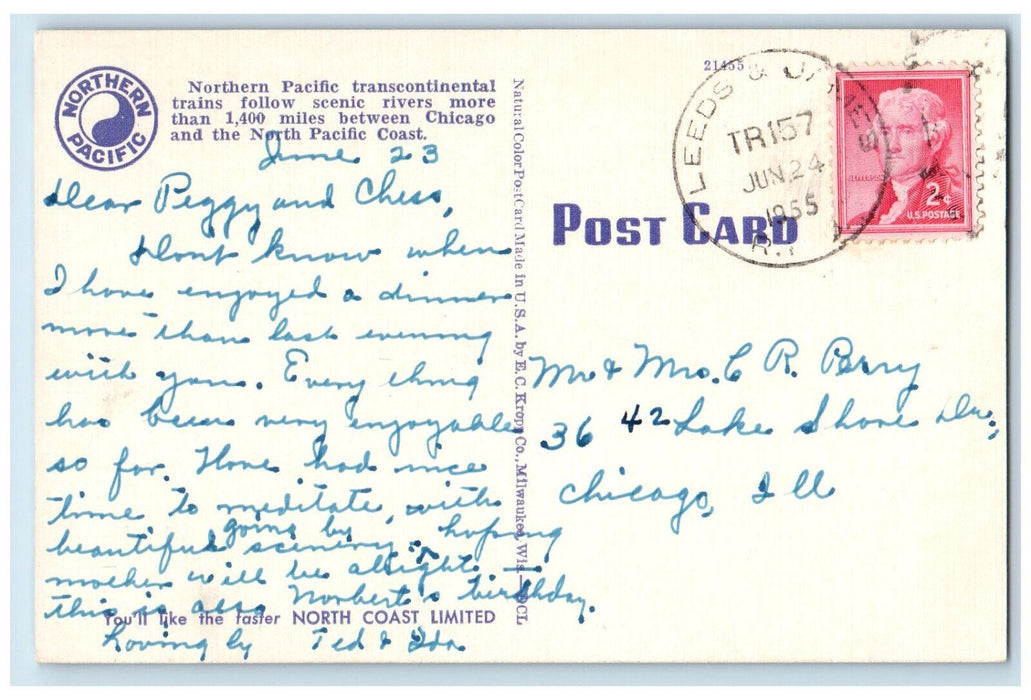 NORTHERN PACIFIC
Northern Pacific transcontinental
trains follow scenic rivers more
than 1,400 miles between Chicago
and the North Pacific Coast.
June 23
Dear Peggy and Chess,
Dont know when
I have enjoyed a dinner
more than last evening
with you. Every thing
has been very enjoyable
so far. Have had nice
time to meditate, with
beautiful scenery going by. hoping
mother will be alright —
this is also Norbert's birthday.
You'll like the faster NORTH COAST LIMITED
Lovingly Ted & Ida
Natural Color Post Card Made in U.S.A. by E. C. Kropp Co., Milwaukee, Wis.
21455
LEEDS & JAMES
TR157
JUN 24
1955
R.P.O.
JEFFERSON
2¢
U.S. POSTAGE
POST CARD
Mr & Mrs. C R. Berry
3642 Lake Shore Dr.,
Chicago, Ill